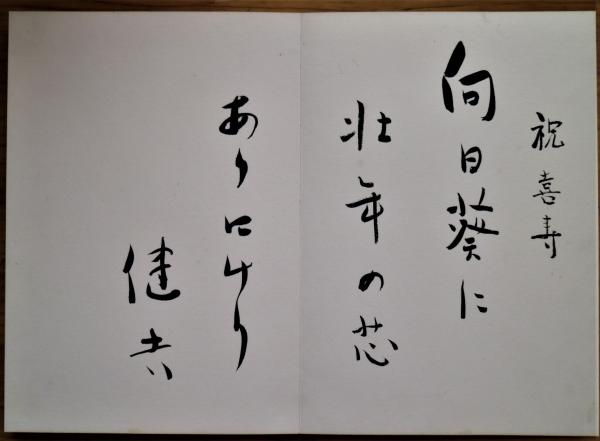 祝喜寿
向日葵に
壮年の芯
ありにけり
健吉